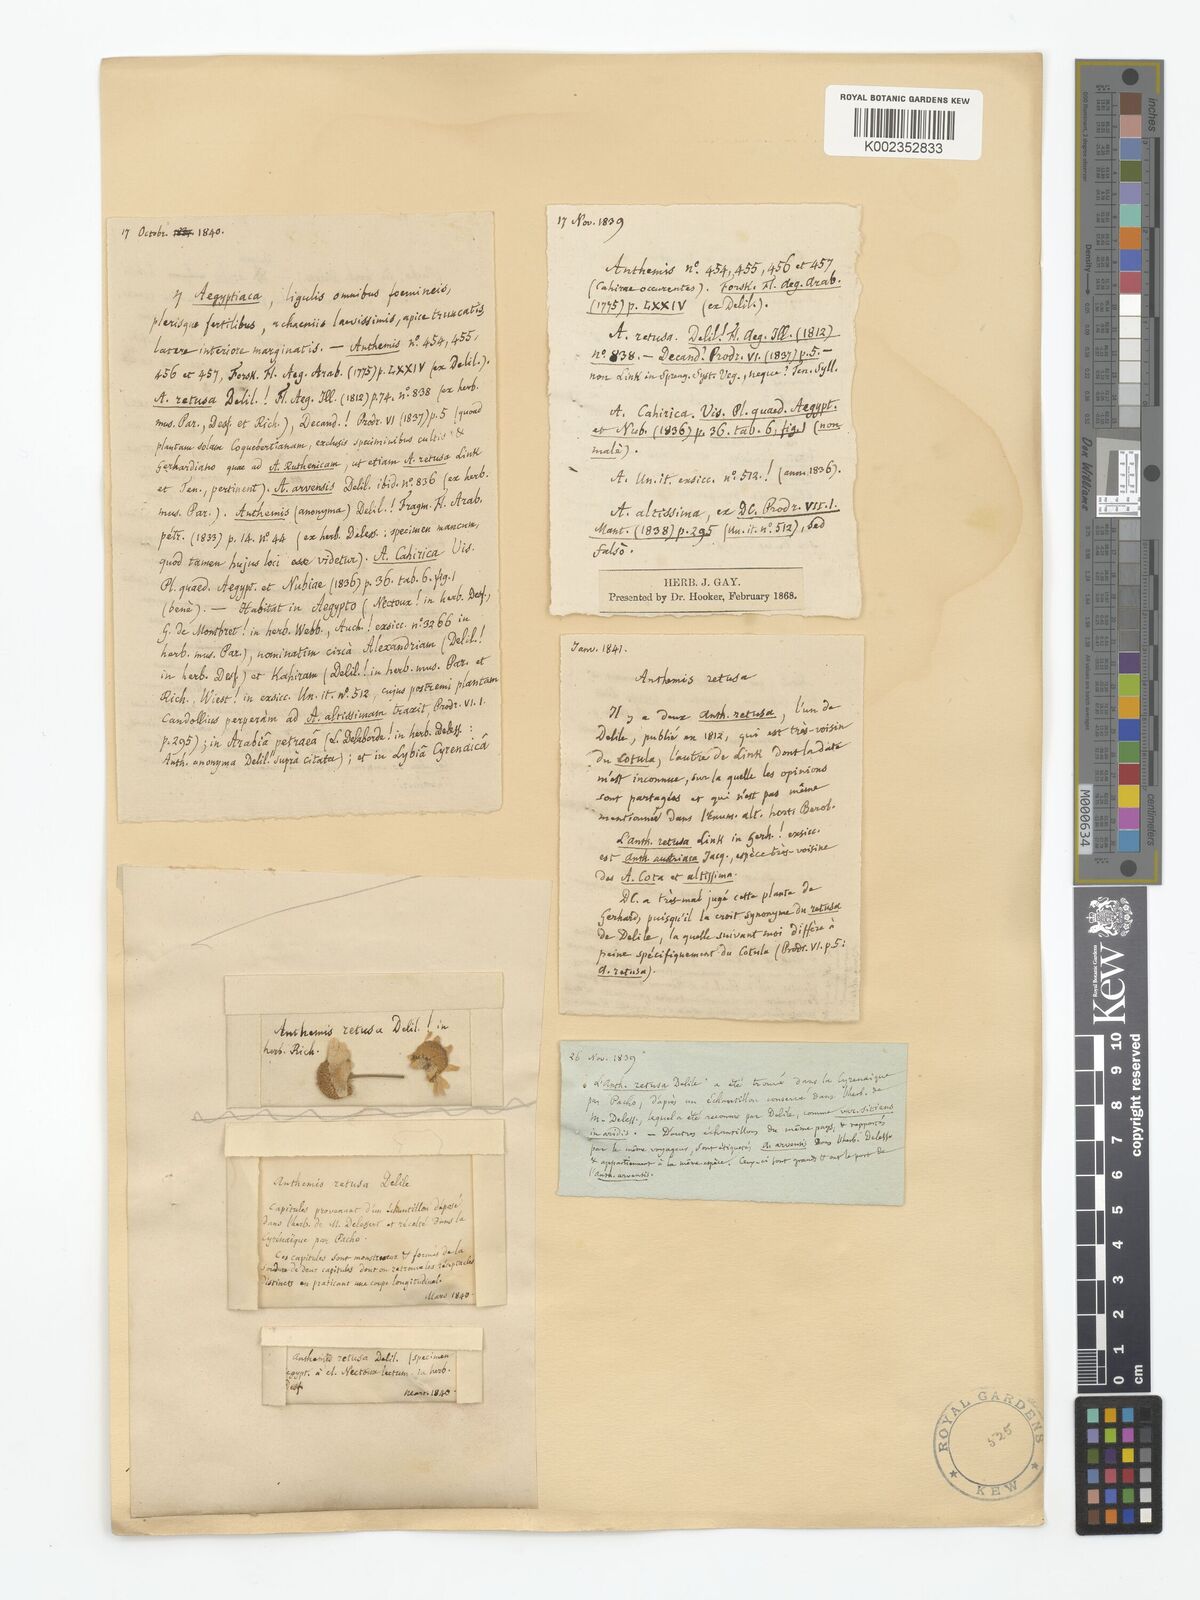 ROYAL BOTANIC GARDENS KEW
K002352833
17 Octobr. 1840.
η Aegyptiaca, ligulis omnibus foemineis,
plerisque fertilibus, achaeniis laevissimis, apice truncatis,
latere interiore marginatis. — Anthemis nº. 454, 455,
456 et 457, Forsk. Fl. Aeg. Arab. (1775) p. LXXIV (ex Delil.).
A. retusa Delil.! Fl. Aeg. Ill. (1812) p. 74. nº. 838 (ex herb.
mus. Par., Desf. et Rich.), Decand.! Prodr. VI (1837) p. 5 (quoad
plantam solam Coquebertianam, exclusis speciminibus cultis &
Gerhardiano quae ad A. Ruthenicam, ut etiam A. retusa Link
et Ten., pertinent). A. arvensis Delil. ibid. nº. 836 (ex herb.
mus. Par.). Anthemis (anonyma) Delil.! Fragm. Fl. Arab.
petr. (1833) p. 14. nº. 44 (ex herb. Deless.: specimen mancum,
quod tamen hujus loci esse videtur). A. Cahirica Vis.
Pl. quaed. Aegypt. et Nubiae (1836) p. 36. tab. 6. fig. 1
(benè). — Habitat in Aegypto (Nectoux! in herb. Desf.,
G. de Montbret! in herb. Webb., Auch.! exsicc. nº. 3266 in
herb. mus. Par.), nominatim circà Alexandriam (Delil.!
in herb. Desf) et Kahiram (Delil.! in herb. mus. Par. et
Rich., Wiest! in exsicc. Un. it. nº. 512, cujus postremi plantam
Candollius perperàm ad A. altissimam traxit, Prodr. VI. 1.
p. 295); in Arabiâ petraeâ (L. Delaborde! in herb. Deless:
Anth. anonyma Delil. suprà citata); et in Lybiâ Cyrendicâ
17 Nov. 1839
Anthemis nº. 454, 455, 456 et 457
(Cahirae occurentes). Forsk. Fl. Aeg. Arab.
(1775) p. LXXIV (ex Delil.).
A. retusa. Delil.! Fl. Aeg. Ill. (1812)
nº. 838. — Decand.! Prodr. VI. (1837) p. 5. —
non Link in Spreng. Syst. Veg., neque? Ten. Syll.
A. Cahirica. Vis. Pl. quaed. Aegypt.
et Nub. (1836) p. 36. tab. 6, fig. 1 (non
malè).
A. Un. it. exsicc. nº. 512.! (ann. 1836).
A. altissima, ex DC. Prodr. VII. I.
Mant. (1838) p. 295 (Un. it. nº. 512), sed
falsò.
HERB. J. GAY.
Presented by Dr. Hooker, February 1868.
Janv. 1841.
Anthemis retusa
Il y a deux Anth. retusa, l'un de
Delile, publié en 1812, qui est très-voisin
du Cotula, l'autre de Link dont la date
m'est inconnue, sur la quelle les opinions
sont partagées et qui n'est pas même
mentionnée dans l'Enum. alt. horti Berol.
L'Anth. retusa Link in Gerh.! exsicc.
est Anth. austriaca Jacq., espèce très-voisine
des A. Cota et altissima.
DC. a très-mal jugé cette plante de
Gerhard, puisqu'il la croit synonyme du retusa
de Delile, la quelle suivant moi diffère à
peine spécifiquement du Cotula (Prodr. VI. p. 5:
A. retusa).
26 Nov. 1839
L'Anth. retusa Delile a été trouvé dans la Cyrenaique
par Pacho, d'après un échantillon conservé dans l'herb. de
M. Deless., lequel a été reconnu par Delile, comme var. sitiens
in aridis. — D'autres échantillons du même pays, & rapportés
par le même voyageur, sont étiquetés A. arvensis dans l'herb. Delessr
& appartiennent à la même espèce. Ceux-ci sont grands & ont le port de
l'Anth. arvensis.
Anthemis retusa Delil.! in
herb. Rich.
Anthemis retusa Delile
Capitules provenant d'un échantillon déposé
dans l'herb. de M. Delessert et récolté dans la
Cyrénaïque par Pacho.
Ces capitules sont monstrueux & formés de la
soudure de deux capitules dont on retrouve les réceptacles
distincts en pratiquant une coupe longitudinale.
Mars 1840
Anthemis retusa Delil. (specimen
egypt. à cl. Nectoux lectum. in herb.
Desf.
Mars. 1840
ROYAL GARDENS
KEW
525
inches
centimeters
Don Williams
M000634
Royal Botanic Gardens
Kew
copyright reserved
10
9
8
7
6
5
4
3
2
1
0
cm